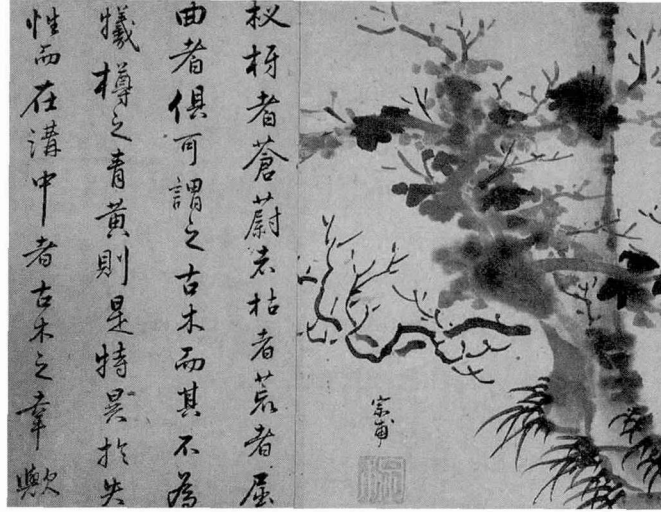 宗甫
杈枒者蒼蔚者枯者荒者屈
曲者俱可謂之古木而其不為
犧樽之青黃則是特異於失
性而在溝中者古木之幸歟